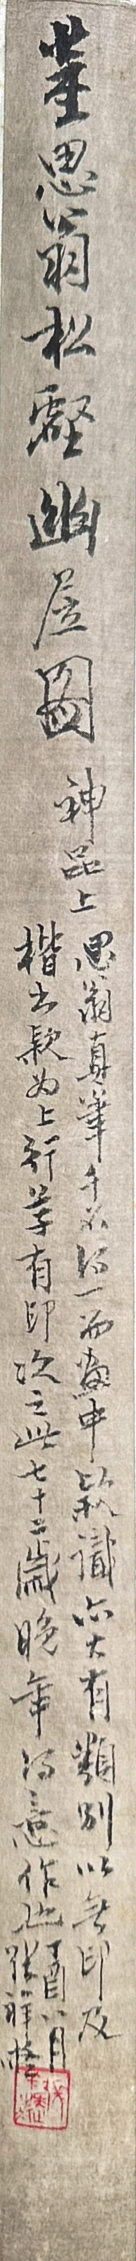 董思翁松壑幽居圖 神品上
思翁真筆千不得一而畫中款識亦大有類別以無印及
楷書款為上行草有印次之此七十二歲晚年得意作也
丁酉八月
張祥河